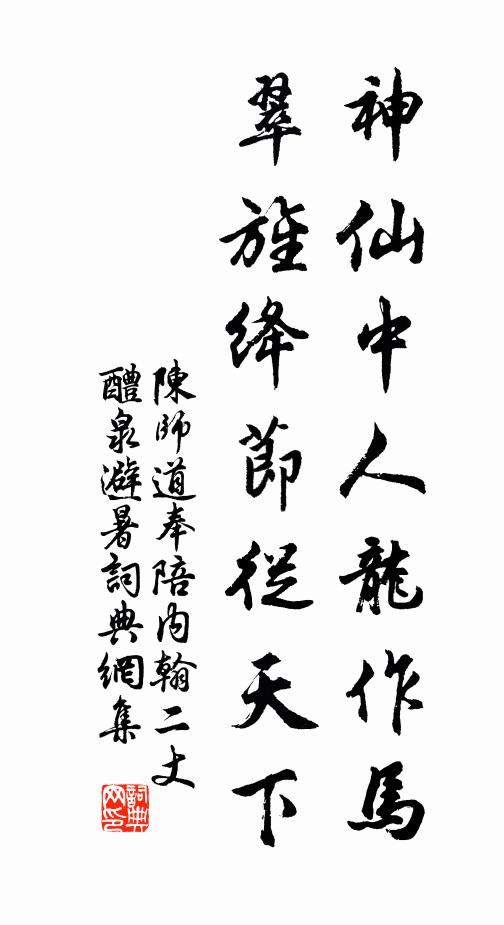 神仙中人龍作馬
翠旌絳節從天下
陳師道奉陪內翰二丈
醴泉避暑詞典網集
詞典网印